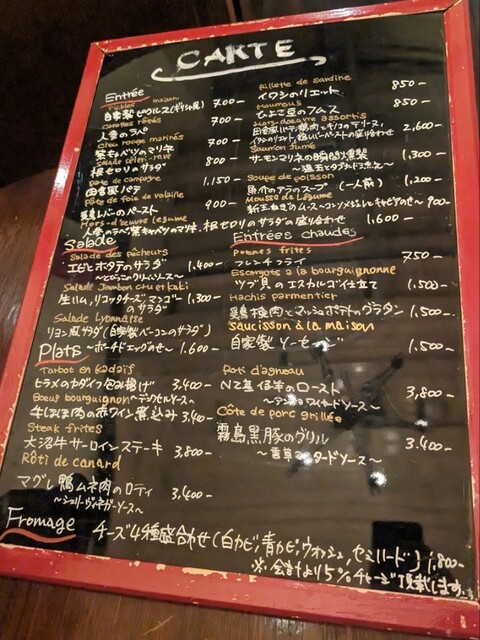 CARTE
Entrée
Pickles maison
自家製ピクルス(ギリシャ風) 700-
Carottes râpés
人参のラペ 700-
Chou rouge marinés
紫キャベツのマリネ 700-
Salade céleri-rave
根セロリのサラダ 800-
Pâté de campagne
田舎風パテ 1,150-
Pâté de foie de volaille
鶏レバーのペースト 900-
Hors-d'œuvre Legume
人参のラペ、紫キャベツのマリネ、根セロリのサラダの盛り合わせ 1,600-
Rillette de sardine
イワシのリエット 850-
Houmous
ひよこ豆のフムス 850-
Hors-d'oeuvre assortis
田舎風パテ、鶏肉とキノコのテリーヌ、
イワシのリエット、鶏レバーペーストの盛り合わせ 2,600-
Saumon fumé
サーモンマリネの瞬間燻製 1,300-
Soupe de poisson
魚介のアラのスープ (一人前) 1,200-
Mousse de Légume
新玉ねぎのムース~コンソメジュレとキャビアのせ~ 900-
Salade
Salade des pêcheurs
エビとホタテのサラダ 1,400-
Salade Jambon cru et kaki
生ハム、リコッタチーズ、マンゴーのサラダ 1,300-
Salade Lyonnaise
リヨン風サラダ(自家製ベーコンのサラダ)
~ポーチドエッグのせ~ 1,600-
Entrées chaudes
Pommes frites
フレンチフライ 750-
Escargots a la bourguignonne
ツブ貝のエスカルゴ仕立て 1,500-
Hachis parmentier
鶏挽肉とマッシュポテトのグラタン 1,500-
Saucisson à la maison
自家製ソーセージ 1,500-
Plats
Turbot en kadaïf
ヒラメのカダイフ包み揚げ 3,400-
Boeuf bourguignon
牛ほほ肉の赤ワイン煮込み 3,400-
Steak frites
大沼牛サーロインステーキ 3,800-
Rôti de canard
マグレ鴨ムネ肉のロティ 3,400-
~シェリーヴィネガーソース~
Roti d'agneau
NZ産仔羊のロースト 3,800-
Côte de porc grillée
霧島黒豚のグリル 3,400-
~香草マスタードソース~
Fromage チーズ4種盛合わせ(白カビ,青カビ,ウォッシュ,セミハード) 1,800-
※会計より5%チャージ頂戴します。